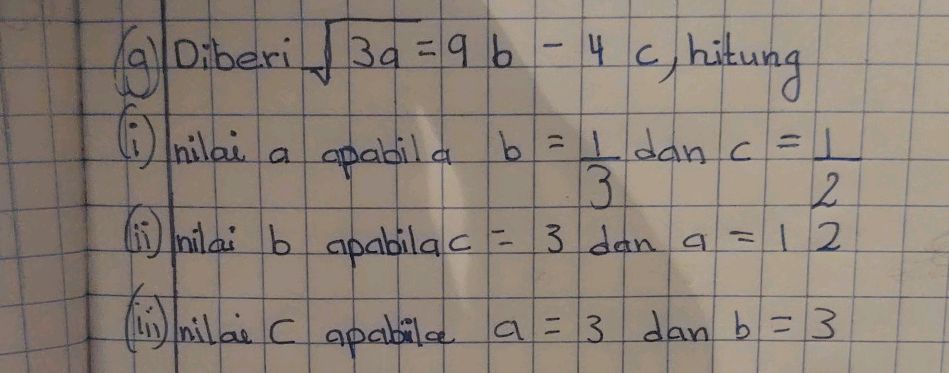 (g) Diberi √3a = 9b - 4c, hitung
(i) nilai a apabila b = 1/3 dan c = 1/2
(ii) nilai b apabila c = 3 dan a = 12
(iii) nilai c apabila a = 3 dan b = 3